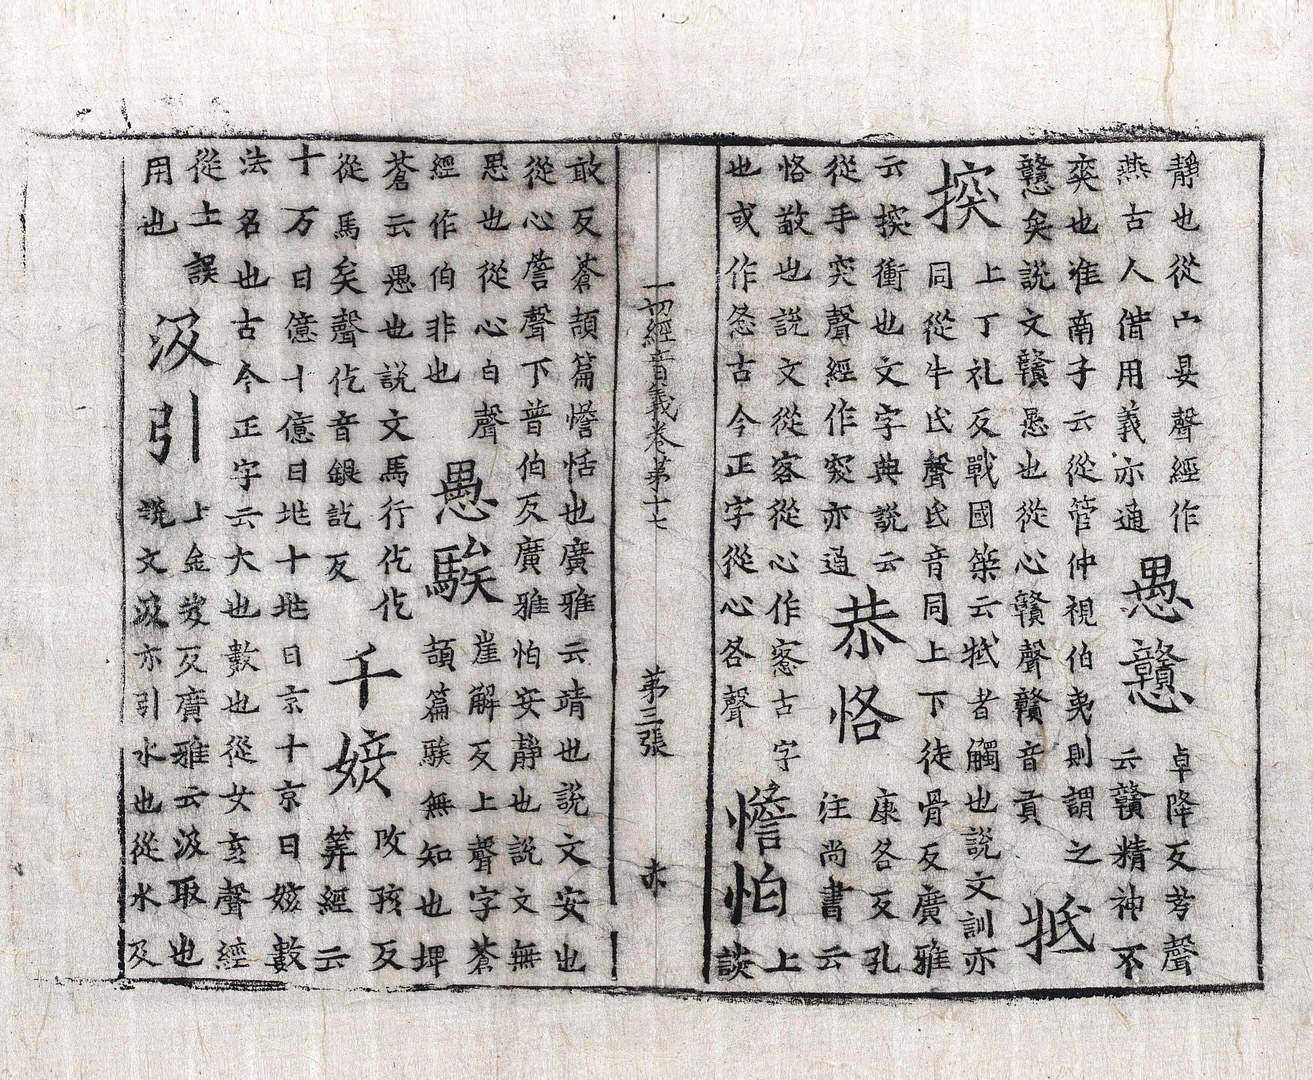 靜也從宀晏聲經作
燕古人借用義亦通
愚戇
卓降反考聲
云戇精神不
爽也淮南子云從管仲視伯夷則謂之
戇矣説文戇愚也從心贛聲贛音貢
牴
揬
上丁礼反戰國策云牴者觸也説文訓亦
同從牛氐聲氐音同上下徒骨反廣雅
云揬衝也文字典説云
從手突聲經作突亦通
恭恪
康各反孔
注尚書云
恪敬也説文從客從心作愙古字
也或作㤩古今正字從心各聲
憺怕
上
談
一切經音義卷第十七
第三張
赤
敢反蒼頡篇憺恬也廣雅云靖也説文安也
從心詹聲下普伯反廣雅怕安靜也説文無
思也從心白聲
經作伯非也
愚騃
崖解反上聲字蒼
頡篇騃無知也埤
蒼云愚也説文馬行仡仡
從馬矣聲仡音銀訖反
千姟
改孩反
筭經云
十万曰億十億曰兆十兆曰京十京曰姟數
法名也古今正字云大也數也從女亥聲經
從土誤
用也
汲引
上金岌反廣雅云汲取也
説文汲亦引水也從水及